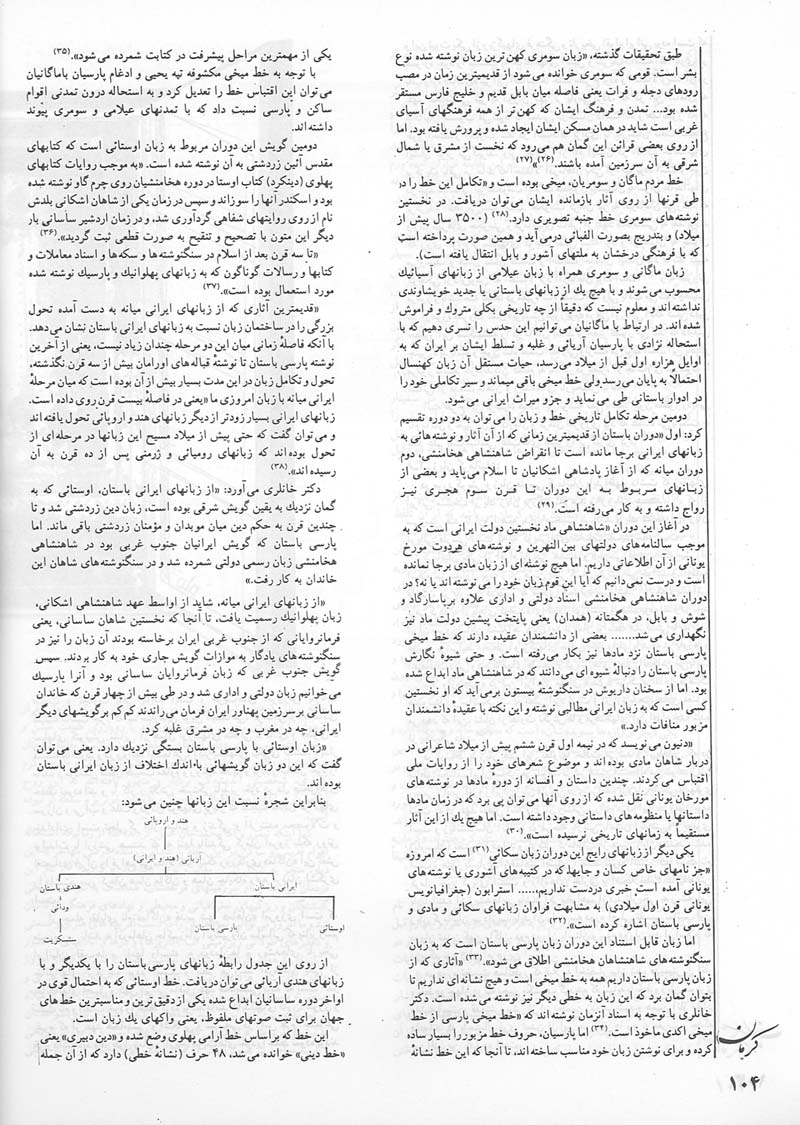 طبق تحقیقات گذشته، «زبان سومری کهن ترین زبان نوشته شده نوع
بشر است. قومی که سومری خوانده می شود از قدیمیترین زمان در مصب
رودهای دجله و فرات یعنی فاصله میان بابل قدیم و خلیج فارس مستقر
شده بود... تمدن و فرهنگ ایشان که کهن تر از همه فرهنگهای آسیای
غربی است شاید در همان مسکن ایشان ایجاد شده و پرورش یافته بود. اما
از روی بعضی قرائن این گمان هم می رود که نخست از مشرق یا شمال
شرقی به آن سرزمین آمده باشند.(۲۶)»(۲۷)
خط مردم ماگان و سومریان، میخی بوده است و «تکامل این خط را در
طی قرنها از روی آثار بازمانده ایشان می توان دریافت. در نخستین
نوشته های سومری خط جنبه تصویری دارد.(۲۸) (۳۵۰۰ سال پیش از
میلاد) و بتدریج بصورت الفبائی درمی آید و همین صورت پرداخته است
که با فرهنگی درخشان به ملتهای آشور و بابل انتقال یافته است).
زبان ماگانی و سومری همراه با زبان عیلامی از زبانهای آسیانیك
محسوب می شوند و با هیچ یك از زبانهای باستانی یا جدید خویشاوندی
نداشته اند و معلوم نیست که دقیقاً از چه تاریخی بکلی متروك و فراموش
شده اند. در ارتباط با ماگانیان می توانیم این حدس را تسری دهیم که با
استحاله نژادی با پارسیان آریائی و غلبه و تسلط ایشان بر ایران که به
اوایل هزاره اول قبل از میلاد می رسد، حیات مستقل آن زبان کهنسال
احتمالاً به پایان می رسد ولی خط میخی باقی میماند و سیر تکاملی خود را
در ادوار باستانی طی می نماید و جزو میراث ایرانی می شود.
دومین مرحله تکامل تاریخی خط و زبان را می توان به دو دوره تقسیم
کرد: اول «دوران باستان از قدیمیترین زمانی که از آن آثار و نوشته هائی به
زبانهای ایرانی برجا مانده است تا انقراض شاهنشاهی هخامنشی، دوم
دوران میانه که از آغاز پادشاهی اشکانیان تا اسلام می پاید و بعضی از
زبـانهای مـربـوط بـه ایـن دوران تـا قـرن سـوم هجری نـیـز
رواج داشته و به کار می رفته است.(۲۹)
در آغاز این دوران «شاهنشاهی ماد نخستین دولت ایرانی است که به
موجب سالنامه های دولتهای بین النهرین و نوشته های هردوت مورخ
یونانی از آن اطلاعاتی داریم. اما هیچ نوشته ای از زبان مادی برجا نمانده
است و درست نمی دانیم که آیا این قوم زبان خود را می نوشته اند یا نه؟ در
دوران شاهنشاهی هخامنشی اسناد دولتی و اداری علاوه بر پاسارگاد و
شوش و بابل، در هگمتانه (همدان) یعنی پایتخت پیشین دولت ماد نیز
نگهداری می شد....... بعضی از دانشمندان عقیده دارند که خط میخی
پارسی باستان نزد مادها نیز بکار می رفته است. و حتی شیوهٔ نگارش
پارسی باستان را دنبالهٔ شیوه ای می دانند که در شاهنشاهی ماد ابداع شده
بود. اما از سخنان داریوش در سنگنوشتهٔ بیستون برمی آید که او نخستین
کسی است که به زبان ایرانی مطالبی نوشته و این نکته با عقیدهٔ دانشمندان
مزبور منافات دارد.»
«دنیون می نویسد که در نیمه اول قرن ششم پیش از میلاد شاعرانی در
دربار شاهان مادی بوده اند و موضوع شعرهای خود را از روایات ملی
اقتباس می کردند. چندین داستان و افسانه از دورهٔ مادها در نوشته های
مورخان یونانی نقل شده که از روی آنها می توان پی برد که در زمان مادها
داستانها یا منظومه های داستانی وجود داشته است. اما هیچ یك از این آثار
مستقیماً به زمانهای تاریخی نرسیده است».(۳۰)
یکی دیگر از زبانهای رایج این دوران زبان سکائی(۳۱) است که امروزه
«جز نامهای خاص کسان و جایها، که در کتیبه های آشوری یا نوشته های
یونانی آمده است خبری دردست نداریم،...... استرابون (جغرافیانویس
یونانی قرن اول میلادی) به مشابهت فراوان زبانهای سکائی و مادی و
پارسی باستان اشاره کرده است».(۳۲)
اما زبان قابل استناد این دوران زبان پارسی باستان است که به زبان
سنگنوشته های شاهنشاهان هخامنشی اطلاق می شود».(۳۳) «آثاری که از
زبان پارسی باستان داریم همه به خط میخی است و هیچ نشانه ای نداریم تا
بتوان گمان برد که این زبان به خطی دیگر نیز نوشته می شده است. دکتر
خانلری با توجه به اسناد آنزمان نوشته اند که «خط میخی پارسی از خط
میخی اکدی مأخوذ است.(۳۴) اما پارسیان، حروف خط مزبور را بسیار ساده
کرده و برای نوشتن زبان خود مناسب ساخته اند، تا آنجا که این خط نشانهٔ
یکی از مهمترین مراحل پیشرفت در کتابت شمرده می شود».(۳۵)
با توجه به خط میخی مکشوفه تپه یحیی و ادغام پارسیان باماگانیان
می توان این اقتباس خط را تعدیل کرد و به استحاله درون تمدنی اقوام
ساکن و پارسی نسبت داد که با تمدنهای عیلامی و سومری پیوند
داشته اند.
دومین گویش این دوران مربوط به زبان اوستائی است که کتابهای
مقدس آئین زردشتی به آن نوشته شده است. «به موجب روایات کتابهای
پهلوی (دینکرد) کتاب اوستا در دوره هخامنشیان روی چرم گاو نوشته شده
بود و اسکندر آنها را سوزاند و سپس در زمان یکی از شاهان اشکانی بلدش
نام از روی روایتهای شفاهی گردآوری شد، و در زمان اردشیر ساسانی بار
دیگر این متون با تصحیح و تنقیح به صورت قطعی ثبت گردید».(۳۶)
«تا سه قرن بعد از اسلام در سنگنوشته ها و سکه ها و اسناد معاملات و
کتابها و رسالات گوناگون که به زبانهای پهلوانیك و پارسیك نوشته شده
مورد استعمال بوده است».(۳۷)
«قدیمترین آثاری که از زبانهای ایرانی میانه به دست آمده تحول
بزرگی را در ساختمان زبان نسبت به زبانهای ایرانی باستان نشان می دهد.
با آنکه فاصلهٔ زمانی میان این دو مرحله چندان زیاد نیست، یعنی از آخرین
نوشته پارسی باستان تا نوشتهٔ قباله های اورامان بیش از سه قرن نگذشته،
تحول و تکامل زبان در این مدت بسیار بیش از آن بوده است که میان مرحلهٔ
ایرانی میانه با زبان امروزی ما «یعنی در فاصلهٔ بیست قرن روی داده است.
زبانهای ایرانی بسیار زودتر از دیگر زبانهای هند و اروپائی تحول یافته اند
و می توان گفت که حتی پیش از میلاد مسیح این زبانها در مرحله ای از
تحول بوده اند که زبانهای رومیائی و ژرمنی پس از ده قرن به آن
رسیده اند».(۳۸)
دکتر خانلری می آورد: «از زبانهای ایرانی باستان، اوستائی که به
گمان نزدیك به یقین گویش شرقی بوده است، زبان دین زردشتی شد و تا
چندین قرن به حکم دین میان موبدان و مؤمنان زردشتی باقی ماند. اما
پارسی باستان که گویش ایرانیان جنوب غربی بود در شاهنشاهی
هخامنشی زبان رسمی دولتی شمرده شد و در سنگنوشته های شاهان این
خاندان به کار رفت.»
«از زبانهای ایرانی میانه، شاید از اواسط عهد شاهنشاهی اشکانی،
زبان پهلوانیك رسمیت یافت، تا آنجا که نخستین شاهان ساسانی، یعنی
فرمانروایانی که از جنوب غربی ایران برخاسته بودند آن زبان را نیز در
سنگنوشته های یادگار به موازات گویش جاری خود به کار بردند. سپس
گویش جنوب غربی که زبان فرمانروایان ساسانی بود و آنرا پارسیك
می خوانیم زبان دولتی و اداری شد و در طی بیش از چهار قرن که خاندان
ساسانی بر سرزمین پهناور ایران فرمان می راندند کم کم برگویشهای دیگر
ایرانی، چه در مغرب و چه در مشرق غلبه کرد.
«زبان اوستائی با پارسی باستان بستگی نزدیك دارد. یعنی می توان
گفت که این دو زبان گویشهائی با اندك اختلاف از زبان ایرانی باستان
بوده اند.
بنابراین شجرهٔ نسبت این زبانها چنین می شود:
هند و اروپائی
آریائی (هند و ایرانی)
ایرانی باستان
هندی باستان
اوستائی
پارسی باستان
ودائی
سنسکریت
از روی این جدول رابطهٔ زبانهای پارسی باستان را با یکدیگر و با
زبانهای هندی آریائی می توان دریافت. خط اوستائی که به احتمال قوی در
اواخر دوره ساسانیان ابداع شده یکی از دقیق ترین و مناسبترین خط های
جهان برای ثبت صوتهای ملفوظ، یعنی واکهای یك زبان است.
این خط که براساس خط آرامی پهلوی وضع شده و «دین دبیری» یعنی
«خط دینی» خوانده می شد، ۴۸ حرف (نشانهٔ خطی) دارد که از آن جمله
کرمان
۱۰۴